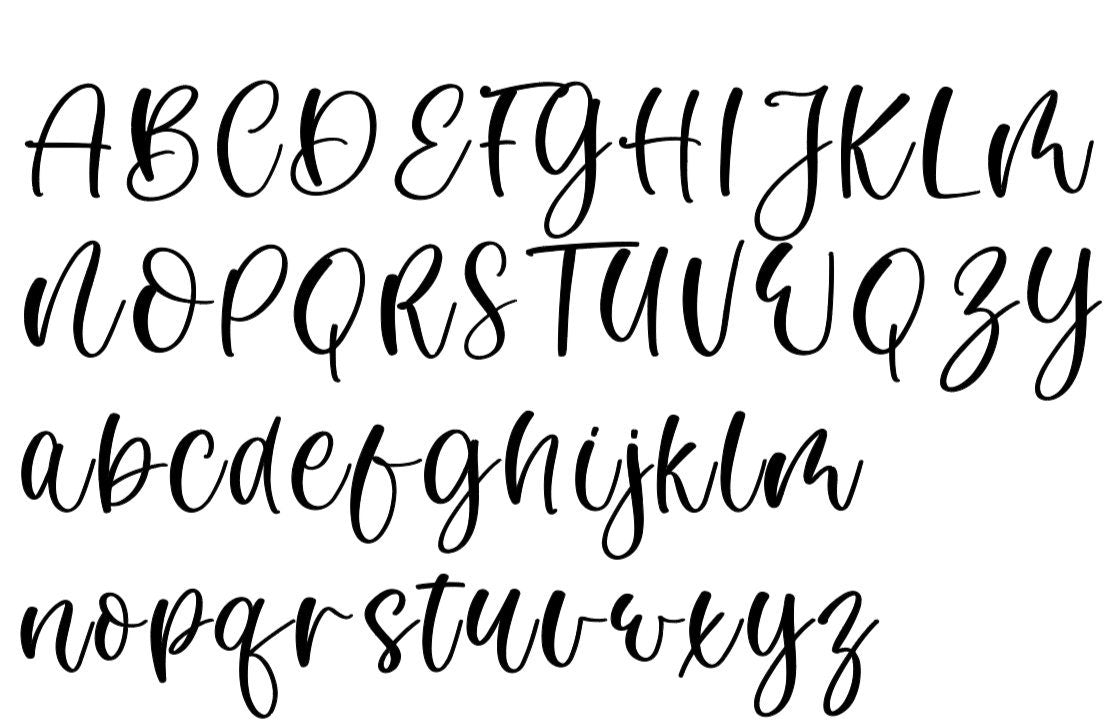 ABCDEFGHIJKLM
NOPQRSTUVWQZY
abcdefghijklm
nopqrstuvwxyz